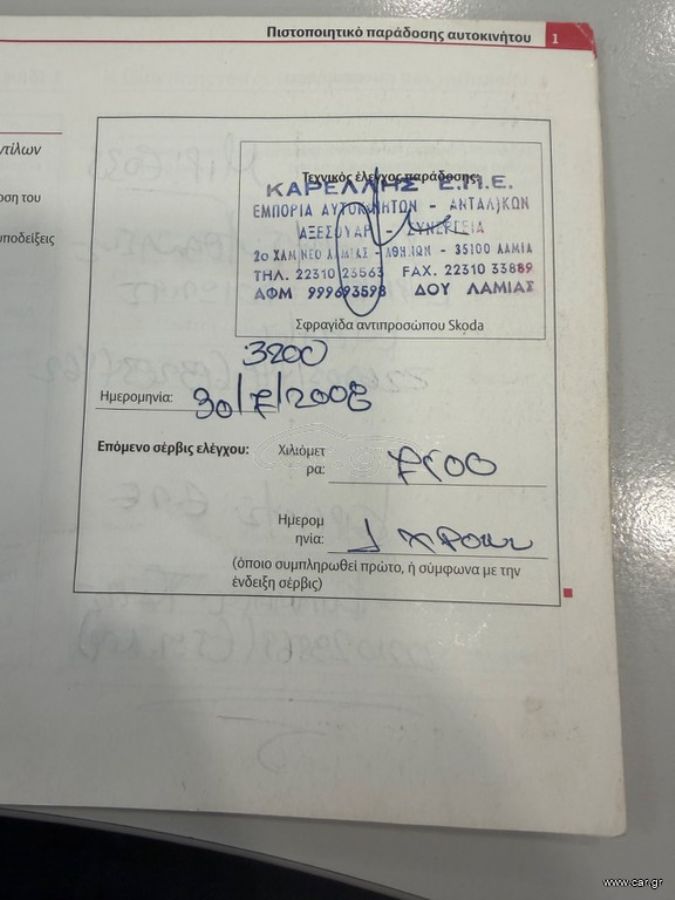 Πιστοποιητικό παράδοσης αυτοκινήτου 1
ντίλων
ποδείξεις
Τεχνικός έλεγχος παράδοσης:
ΚΑΡΕΛΛΗΣ Ε.Π.Ε.
ΕΜΠΟΡΙΑ ΑΥΤΟΚΙΝΗΤΩΝ - ΑΝΤΑΛ/ΚΩΝ
ΑΞΕΣΟΥΑΡ - ΣΥΝΕΡΓΕΙΑ
2ο ΧΛΜ ΝΕΟ ΛΑΜΙΑΣ - ΑΘΗΝΩΝ - 35100 ΛΑΜΙΑ
ΤΗΛ. 22310 23563 FAX. 22310 33889
ΑΦΜ 999693598 ΔΟΥ ΛΑΜΙΑΣ
Σφραγίδα αντιπροσώπου Skoda
3200
Ημερομηνία: 30/7/2008
Επόμενο σέρβις ελέγχου: Χιλιόμετ
ρα: 7500
Ημερομ
ηνία: 1 χρονου
(όποιο συμπληρωθεί πρώτο, ή σύμφωνα με την
ένδειξη σέρβις)
www.car.gr